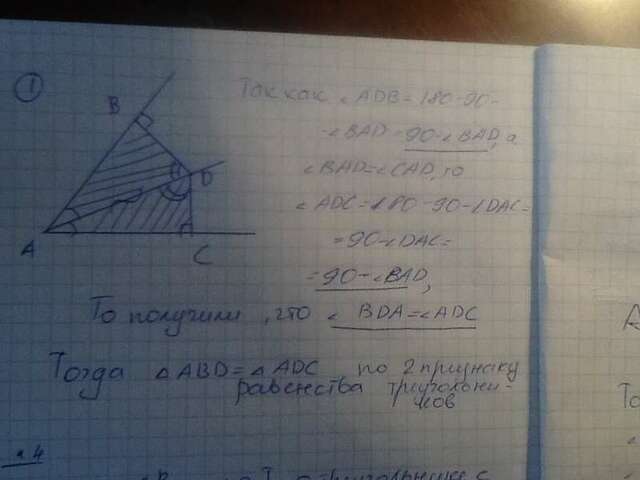 1
B
D
A
C
Так как ∠ADB = 180-90-
-∠BAD = 90-∠BAD, а
∠BAD=∠CAD, то
∠ADC=180-90-∠DAC=
=90-∠DAC=
=90-∠BAD,
То получили, что ∠BDA=∠ADC
Тогда △ABD=△ADC по 2 признаку
равенства триуголни-
ков
№4